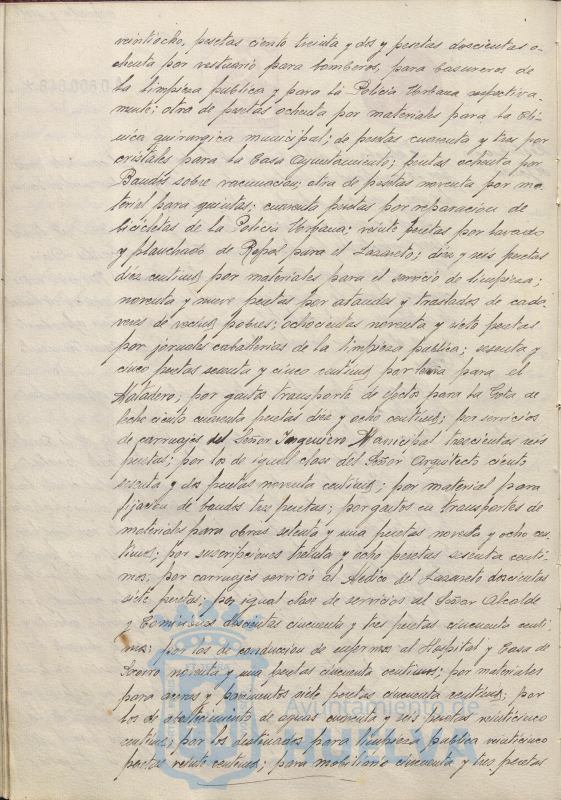 veintiocho, pesetas ciento treinta y dos y pesetas doscientas o-
chenta por vestuario para bomberos, para basureros de
la limpieza publica y para la Policia Urbana respectiva-
mente; otra de pesetas ochenta por materiales para la Clí-
nica quirurgica municipal; de pesetas cuarenta y tres por
cristales para la Casa Ayuntamiento; pesetas ochenta por
Bandos sobre vacunacion; otra de pesetas noventa por ma-
terial para quintas; cuarenta pesetas por reparacion de
bicicletas de la Policia Urbana; veinte pesetas por lavado
y planchado de Ropas para el Lazareto; diez y seis pesetas
diez centimos por materiales para el servicio de limpieza;
noventa y nueve pesetas por ataudes y traslados de cada-
veres de vecinos pobres; ochocientas noventa y siete pesetas
por jornales caballerias de la limpieza publica; sesenta y
cinco pesetas setenta y cinco centimos por para el
Matadero; por gastos transporte de efectos para la Gota de
leche ciento cuarenta pesetas diez y ocho centimos; por servicios
de carruajes del Señor Ingeniero Municipal trescientas seis
pesetas; por los de igual clase del Señor Arquitecto ciento
sesenta y dos pesetas noventa centimos; por material para
fijacion de bandos tres pesetas; por gastos en transportes de
materiales para obras setenta y una pesetas noventa y ocho cen-
timos; por suscripciones treinta y ocho pesetas sesenta centi-
mos; por carruajes servicio al Medico del Lazareto doscientas
siete pesetas; por igual clase de servicios al Señor Alcalde
y Comisiones doscientas cincuenta y tres pesetas cincuenta centi-
mos; por los de conduccion de enfermos al Hospital y Casa de
Socorro noventa y una pesetas cincuenta centimos; por materiales
para aceras y pavimentos siete pesetas cincuenta centimos; por
los de abastecimiento de aguas cuarenta y seis pesetas veinticinco
centimos; por los destinados para limpieza publica veinticinco
pesetas veinte centimos; para mobiliario cincuenta y tres pesetas
Ayuntamiento de
HUELVA